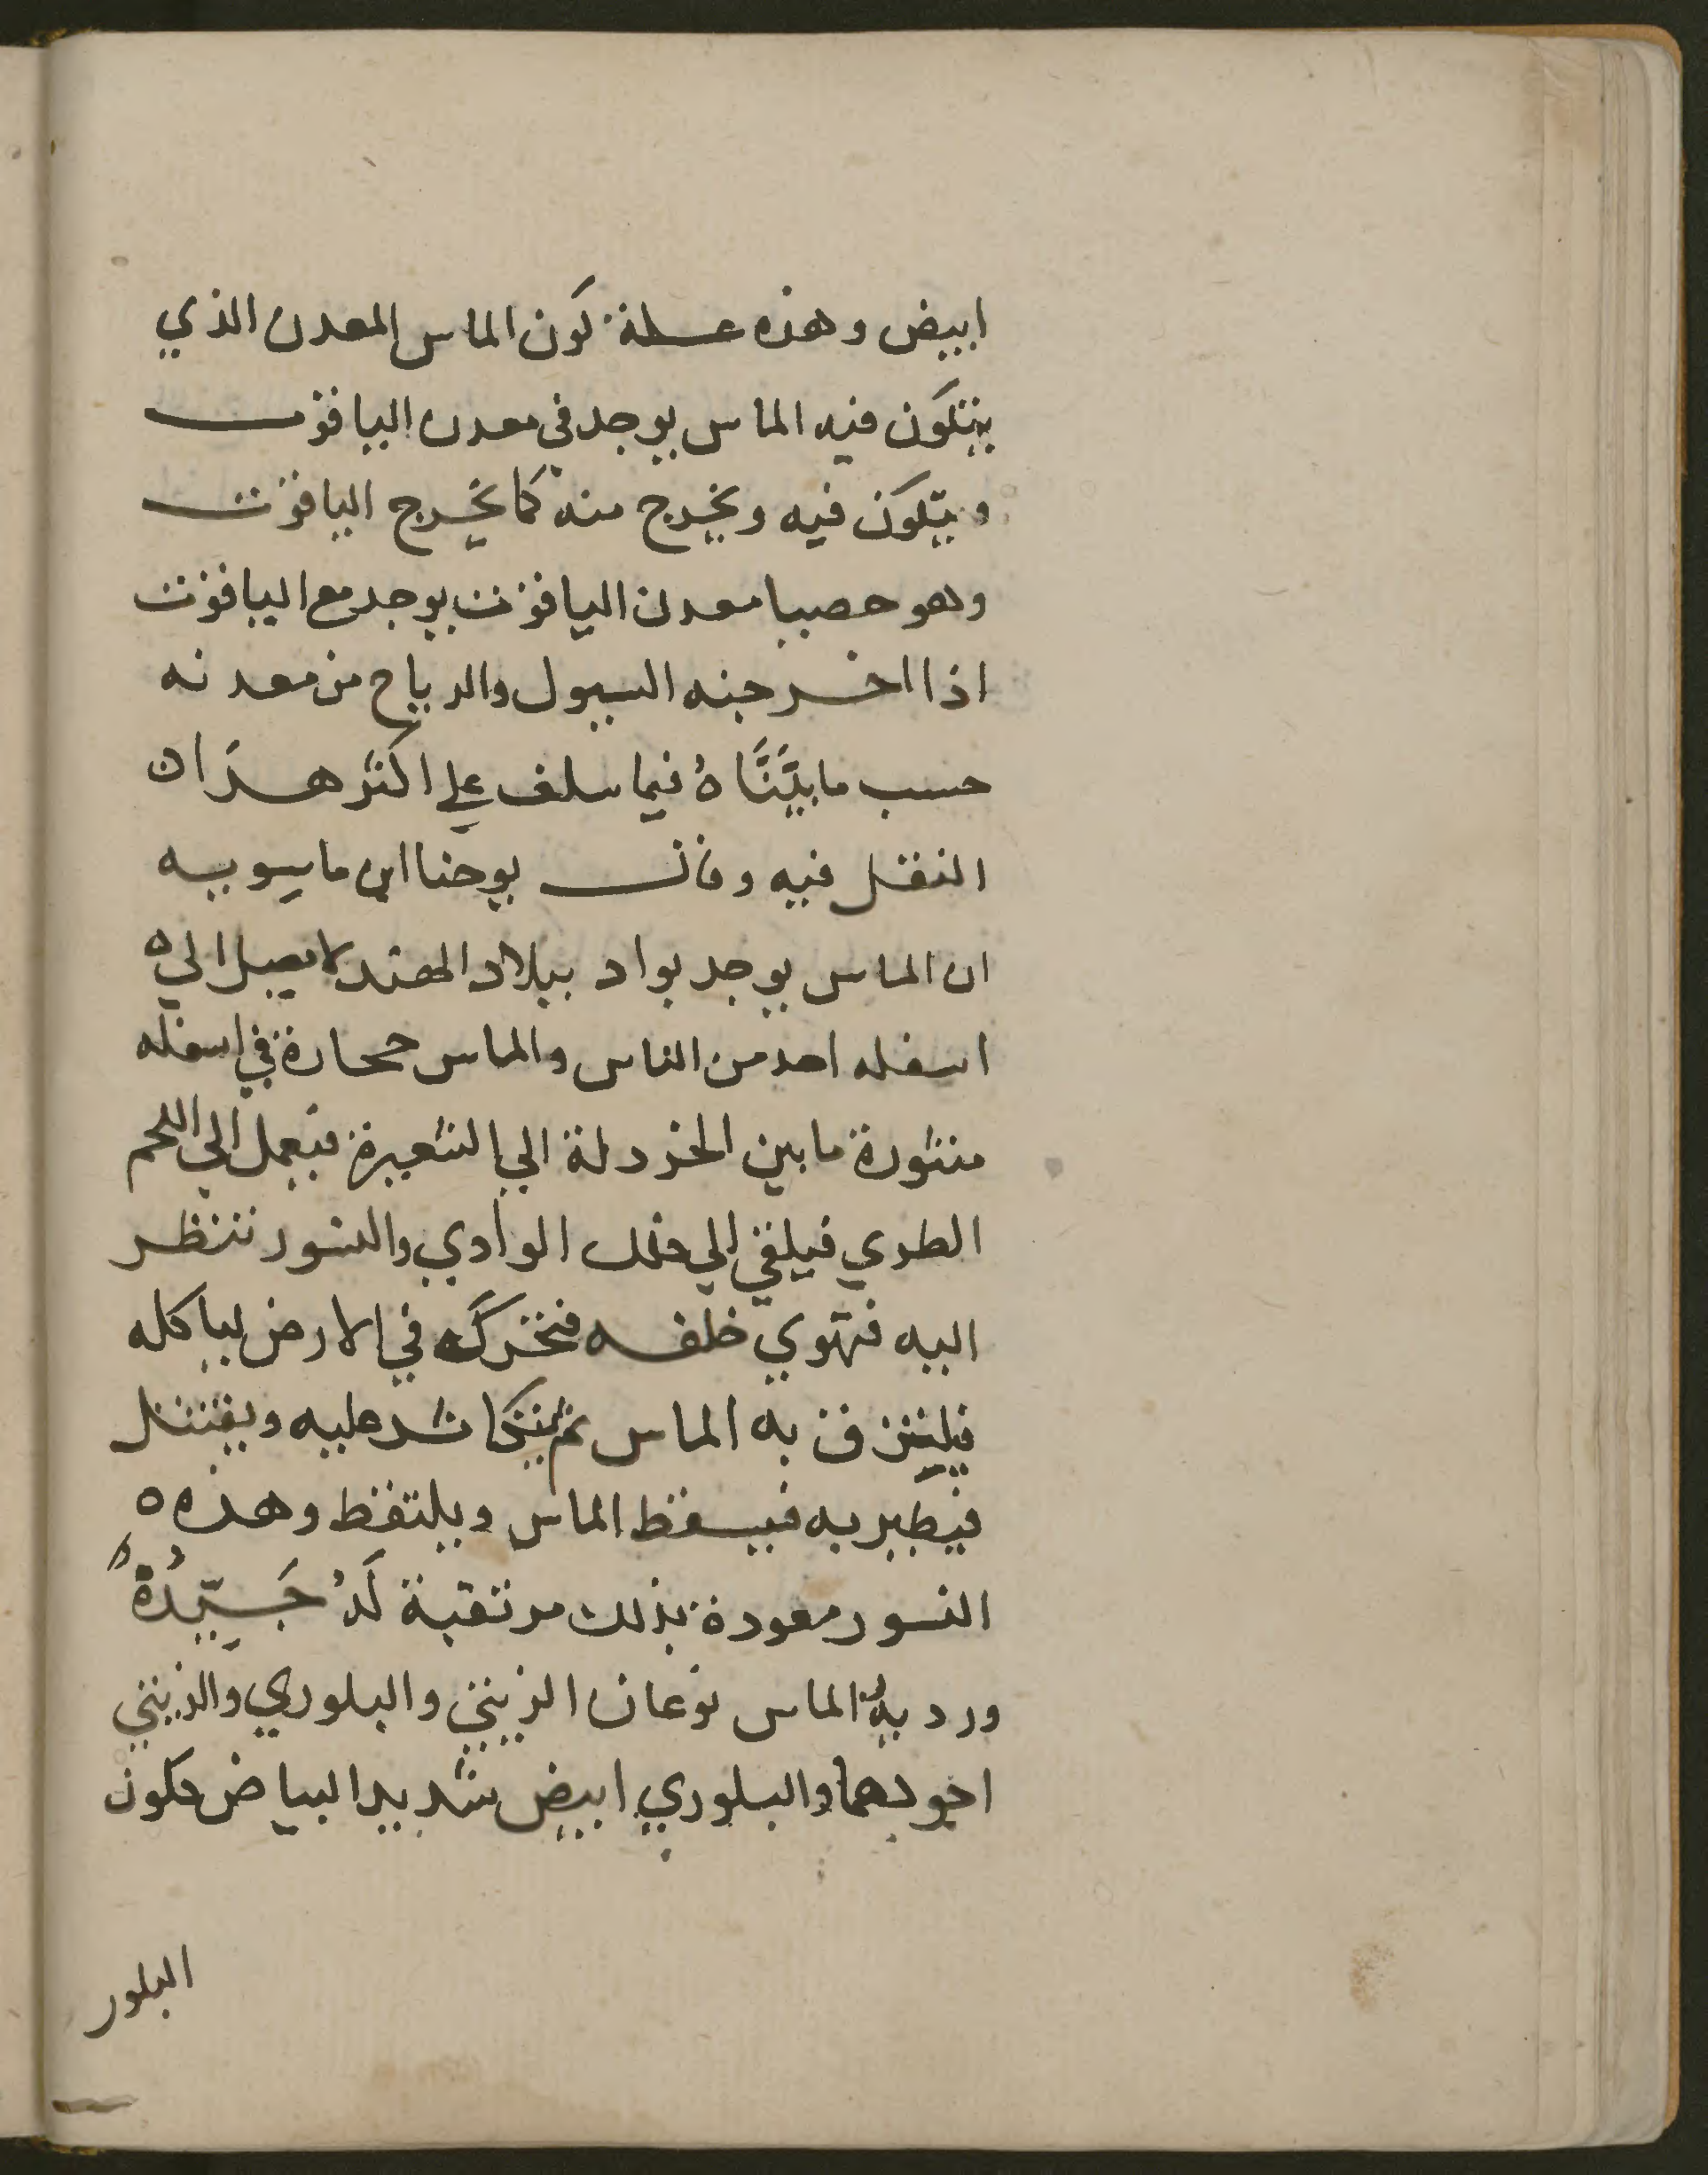 ابيض وهذه علة كون الماس المعدن الذي
يتكون فيه الماس يوجد في معدن الياقوت
ويتكون فيه ويخرج منه كما يخرج الياقوت
وهو حصبا معدن الياقوت يوجد مع الياقوت
اذا اخرجته السيول والرياح من معدنه
حسب ما بيَّنَّاهُ فيما سلف علي اكثر هذَا ان
النقل فيه وقال يوحنا ابن ماسويه
ان الماس يوجد بواد ببلاد الهند لا يصل الي
اسفله احد من الناس والماس حجارة في اسفله
منثورة ما بين الخردلة الي الشعيرة فيعمل الي اللحم
الطري فيلقي الي ذلك الوادي والنسور تنظر
اليه فتهوي خلفه فتحركه في الارض لياكله
فيلتزق به الماس ثم عليه ويقتتل
فيطير به فيسقط الماس ويلتقط وهذه
النسور معودة بذلك مرتقبة لَهُ جَيِّدَةٌ
ورديهُ الماس نوعان الزيتي والبلوري والزيتي
اجودهما والبلوري ابيض شديد البياض كلون
البلور